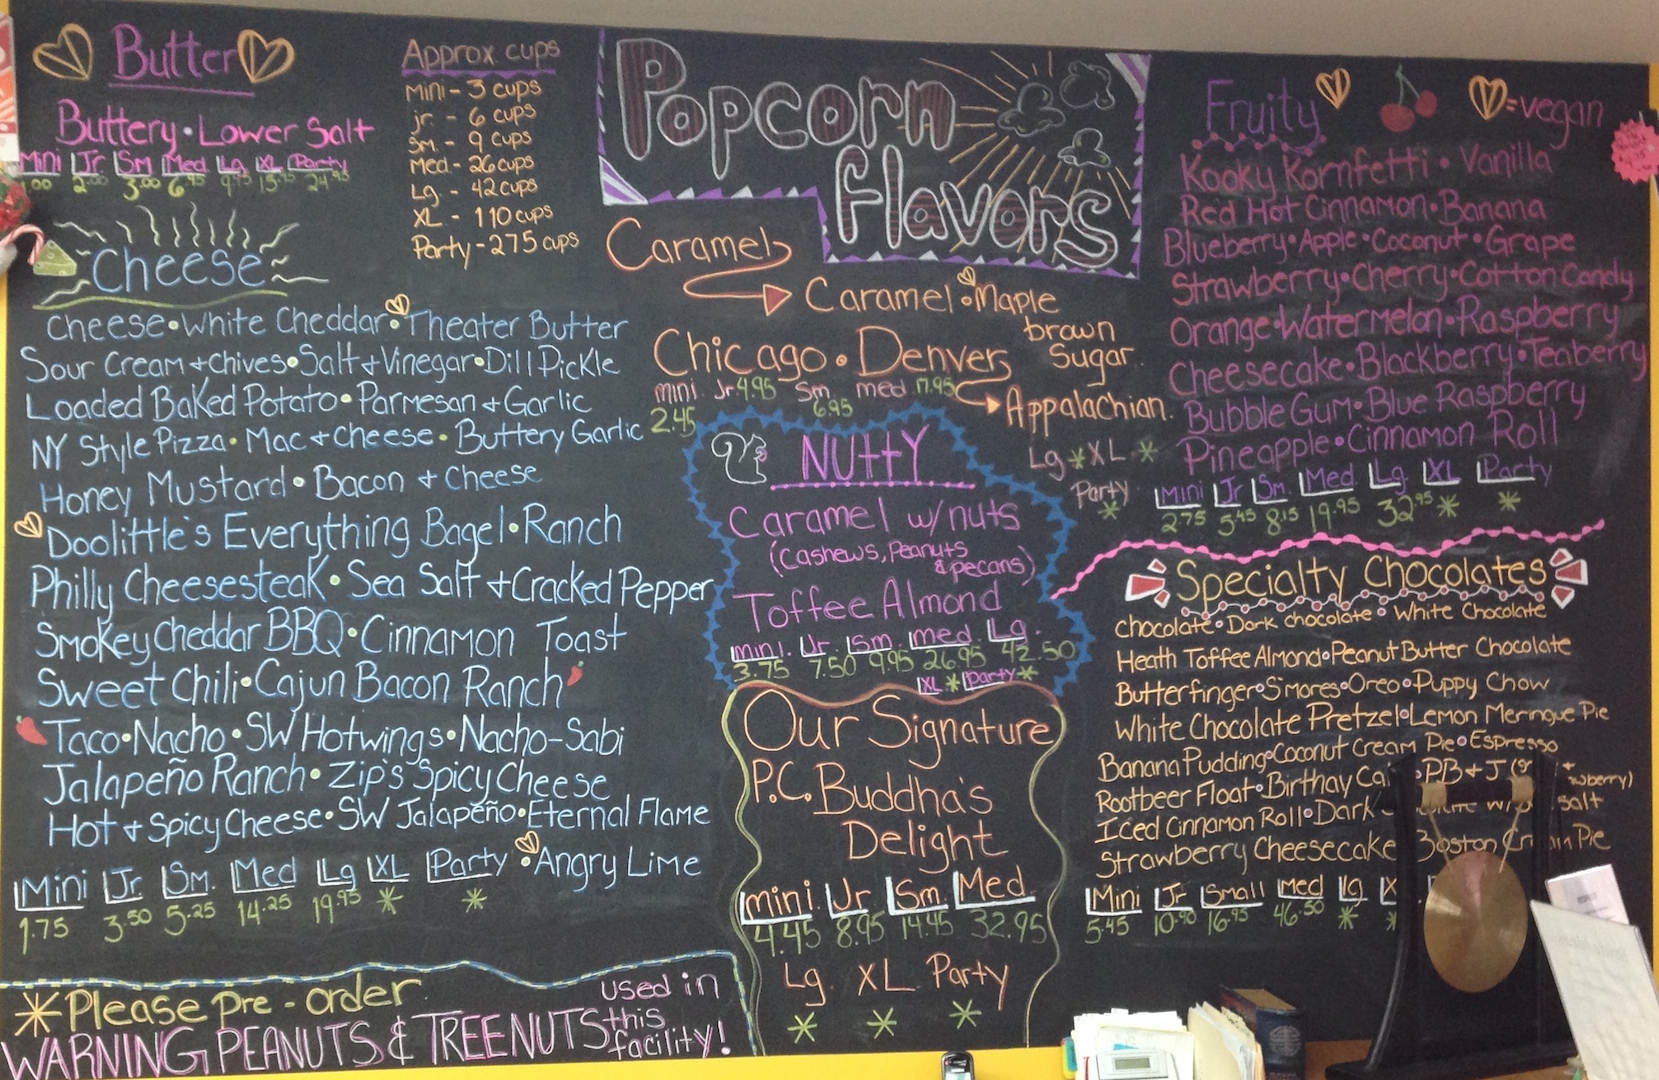 Butter
Buttery • Lower Salt
Mini Jr Sm Med Lg XL Party
1.00 2.00 3.00 6.95 9.95 15.95 24.95
Approx cups
Mini - 3 cups
jr. - 6 cups
Sm. - 9 cups
Med - 26 cups
Lg - 42 cups
XL - 110 cups
Party - 275 cups
Cheese
Cheese • White Cheddar • Theater Butter
Sour Cream + Chives • Salt + Vinegar • Dill Pickle
Loaded Baked Potato • Parmesan + Garlic
NY Style Pizza • Mac + Cheese • Buttery Garlic
Honey Mustard • Bacon + Cheese
Doolittle's Everything Bagel • Ranch
Philly Cheesesteak • Sea Salt + Cracked Pepper
Smokey Cheddar BBQ • Cinnamon Toast
Sweet Chili • Cajun Bacon Ranch
Taco • Nacho • SW Hotwings • Nacho-Sabi
Jalapeño Ranch • Zip's Spicy Cheese
Hot + Spicy Cheese • SW Jalapeño • Eternal Flame
• Angry Lime
Mini Jr. Sm. Med Lg XL Party
1.75 3.50 5.25 14.25 19.95 * *
* Please Pre-order
WARNING PEANUTS & TREE NUTS used in
this
facility!
Popcorn
flavors
Caramel
Caramel • Maple
brown
Sugar
Chicago • Denver
Appalachian
mini Jr. 4.95 Sm. med 17.95
2.45 6.95
Lg * XL *
Party
*
NUTTY
Caramel w/nuts
(Cashews, Peanuts
& pecans)
Toffee Almond
mini. Jr. Sm. med. Lg.
3.75 7.50 9.95 26.95 42.50
XL * Party *
Our Signature
P.C. Buddha's
Delight
mini. Jr Sm. Med.
4.45 8.95 14.45 32.95
Lg. XL Party
* * *
Fruity
=vegan
Kooky Kornfetti • Vanilla
Red Hot Cinnamon • Banana
Blueberry • Apple • Coconut • Grape
Strawberry • Cherry • Cotton Candy
Orange • Watermelon • Raspberry
Cheesecake • Blackberry • Teaberry
Bubble Gum • Blue Raspberry
Pineapple • Cinnamon Roll
Mini Jr Sm. Med. Lg. XL Party
2.75 5.45 8.15 19.95 32.95 * *
Specialty Chocolates
Chocolate • Dark chocolate • White Chocolate
Heath Toffee Almond • Peanut Butter Chocolate
Butterfinger • S'mores • Oreo • Puppy Chow
White Chocolate Pretzel • Lemon Meringue Pie
Banana Pudding • Coconut Cream Pie • Espresso
Rootbeer Float • Birthay • PB + J
Iced Cinnamon Roll • Dark salt
Strawberry Cheesecake Boston Pie
Mini Jr Small Med Lg
5.45 10.90 16.95 46.50 * *